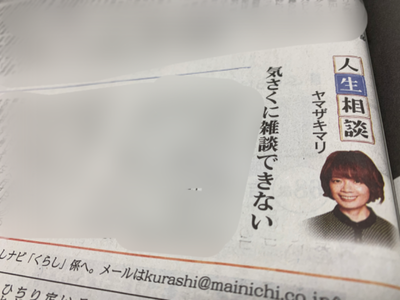 人生相談
ヤマザキマリ
気さくに雑談できない
しナビ「くらし」係へ。メールはkurashi@mainichi.co.